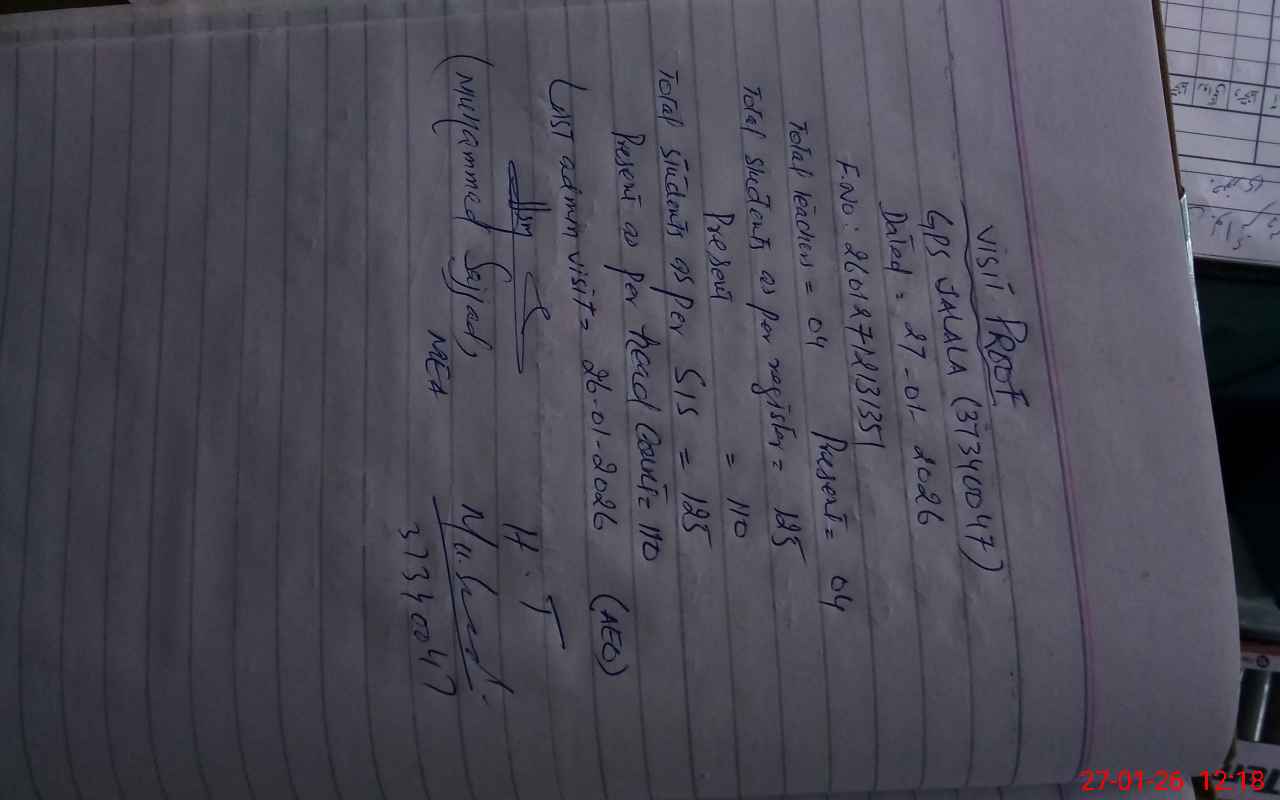 VISIT PROOF
GPS JALALA (37340047)
Dated = 27-01-2026
F.No: 26012712131351
Total teachers = 04 Present = 04
Total students as per register = 125
Present = 110
Total students as per SIS = 125
Present as per head Count = 110
Last admin visit = 26-01-2026 (AEO)
H.T
(Muhammad Sajjad,
MEA
37340047
27-01-26 12:18